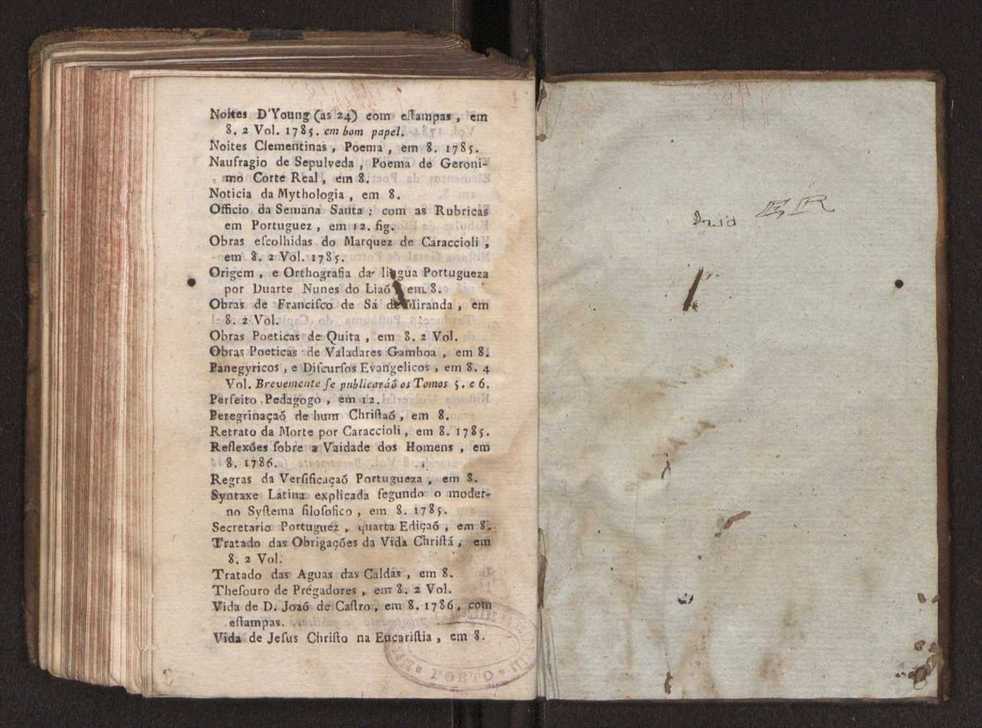 Noites D'Young (as 24) com eſtampas , em
8. 2 Vol. 1785. em bom papel.
Noites Clementinas , Poema , em 8. 1785.
Naufragio de Sepulveda , Poema de Geroni-
mo Corte Real , em 8.
Noticia da Mythologia , em 8.
Officio da Semana Santa : com as Rubricas
em Portuguez , em 12. fig.
Obras eſcolhidas do Marquez de Caraccioli ,
em 8. 2 Vol. 1785.
Origem , e Orthografia da lingua Portugueza
por Duarte Nunes do Liaõ , em 8.
Obras de Franciſco de Sá de Miranda , em
8. 2 Vol.
Obras Poeticas de Quita , em 8. 2 Vol.
Obras Poeticas de Valadares Gamboa , em 8.
Panegyricos , e Diſcurſos Evangelicos , em 8. 4
Vol. Brevemente ſe publicaráõ os Tomos 5. e 6.
Perfeito Pedagogo , em 12.
Peregrinaçaõ de hum Chriſtaõ , em 8.
Retrato da Morte por Caraccioli , em 8. 1785.
Reflexões ſobre a Vaidade dos Homens , em
8. 1786.
Regras da Verſificaçaõ Portugueza , em 8.
Syntaxe Latina explicada ſegundo o moder-
no Syſtema filoſofico , em 8. 1785.
Secretario Portuguez , quarta Ediçaõ , em 8.
Tratado das Obrigações da Vida Chriſtã , em
8. 2 Vol.
Tratado das Aguas das Caldas , em 8.
Theſouro de Prégadores , em 8. 2 Vol.
Vida de D. Joaõ de Caſtro , em 8. 1786 , com
eſtampas.
Vida de Jeſus Chriſto na Eucariſtia , em 8.
PORTO